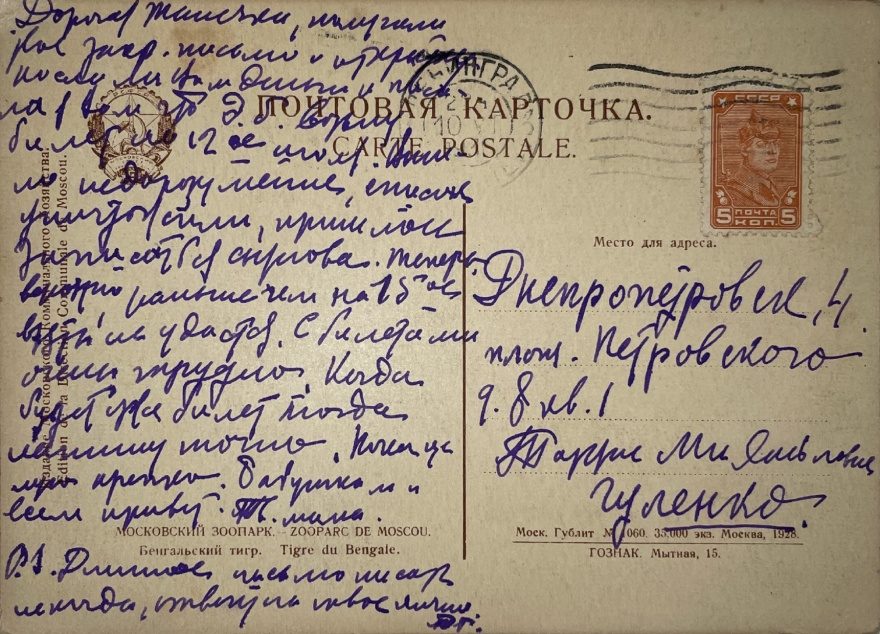 Дорогая
зак. письмо и открытку
послали Вам деньги и
билет на 12ое июля. Вышло
недоразумение, списки
уничтожили, пришлось
записаться снова. Теперь
раньше чем на 15ое
взять не удастся. С билетами
очень трудно. Когда
будет уже билет тогда
напишу точно. Пока це
лую крепко. Бабушкам и
всем привет. Тв. мама.
P.S. Длинное письмо писать
некогда, отвечу на твое лично
ПОЧТОВАЯ КАРТОЧКА.
CARTE POSTALE.
ПОЧТА
5 КОП. 5
Место для адреса.
Днепропетровск, 4
площ. Петровского
д. 8 кв. 1
Гуленко.
Издание Московского Коммунального Хозяйства.
Edition de la Direction Communale de Moscou.
МОСКОВСКИЙ ЗООПАРК. – ZOOPARC DE MOSCOU.
Бенгальский тигр. Tigre du Bengale.
Моск. Гублит № 1060. 35,000 экз. Москва, 1928.
ГОЗНАК. Мытная, 15.